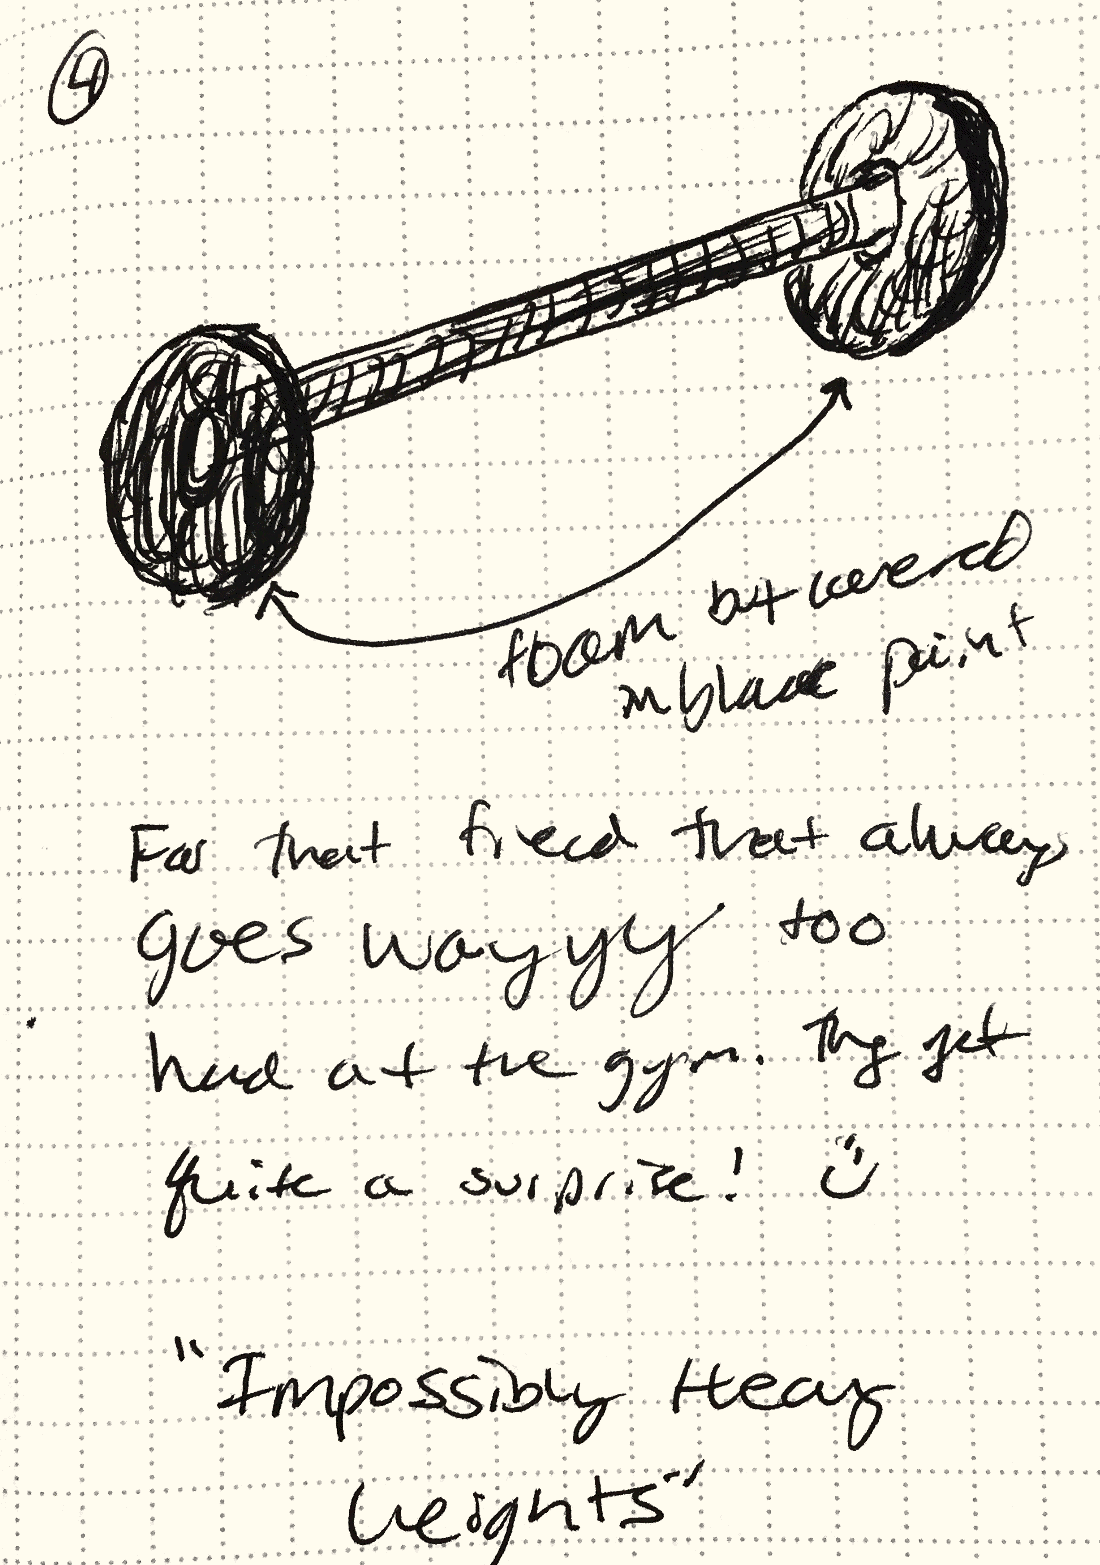 4
foam but covered
in black paint
For that friend that always
goes wayyy too
hard at the gym. They get
quite a surprise!
"Impossibly Heavy
Weights"